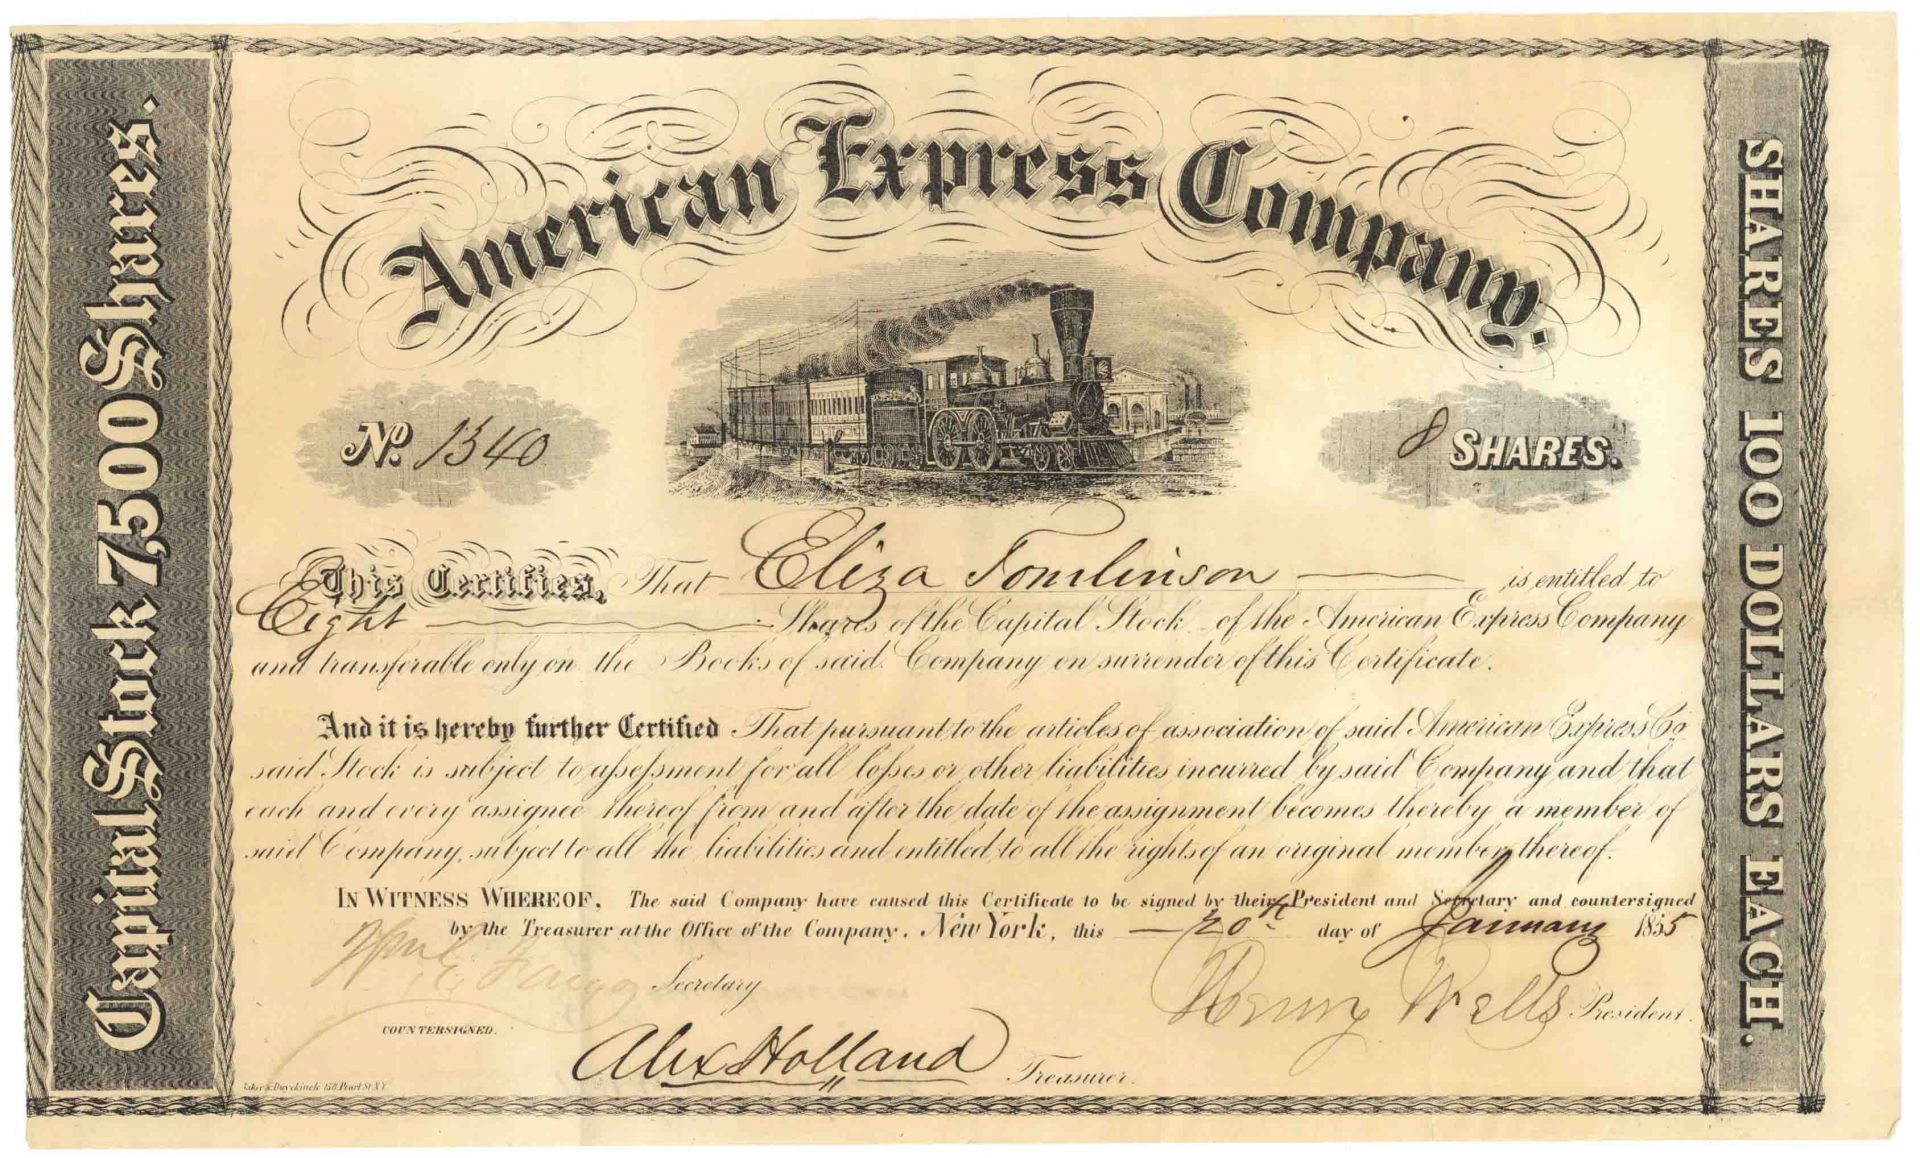 American Express Company.
Capital Stock 7,500 Shares.
SHARES 100 DOLLARS EACH.
No. 1340
8 SHARES.
This Certifies, That Eliza Tomlinson is entitled to
Eight Shares of the Capital Stock of the American Express Company
and transferable only on the Books of said Company on surrender of this Certificate.
And it is hereby further Certified That pursuant to the articles of association of said American Express Co
said Stock is subject to assessment for all losses or other liabilities incurred by said Company and that
each and every assignee thereof from and after the date of the assignment becomes thereby a member of
said Company, subject to all the liabilities and entitled to all the rights of an original member thereof.
IN WITNESS WHEREOF, The said Company have caused this Certificate to be signed by their President and Secretary and countersigned
by the Treasurer at the Office of the Company. New York, this 20th day of January 1855
Secretary
Henry Wells President.
COUNTERSIGNED.
Alex Holland Treasurer.
Duyckinck 158 Pearl St N.Y.